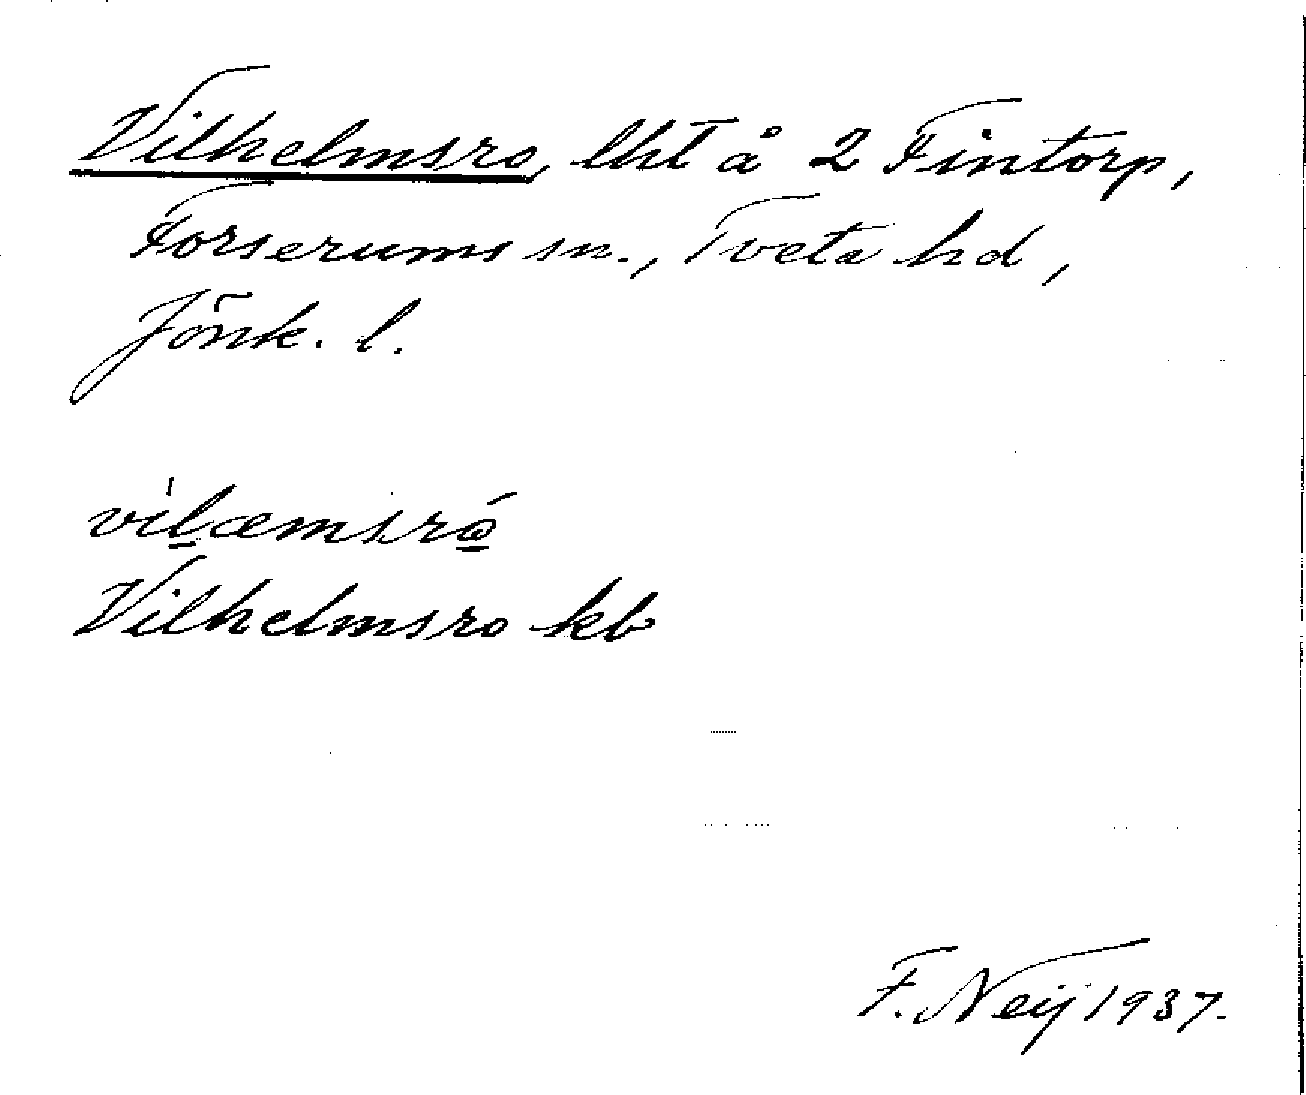 Vilhelmsro, lht å 2 Fintorp,
Forserums sn., Tveta hd,
Jönk. l.
vìlæmsró
Vilhelmsro kb
F. Neij 1937.